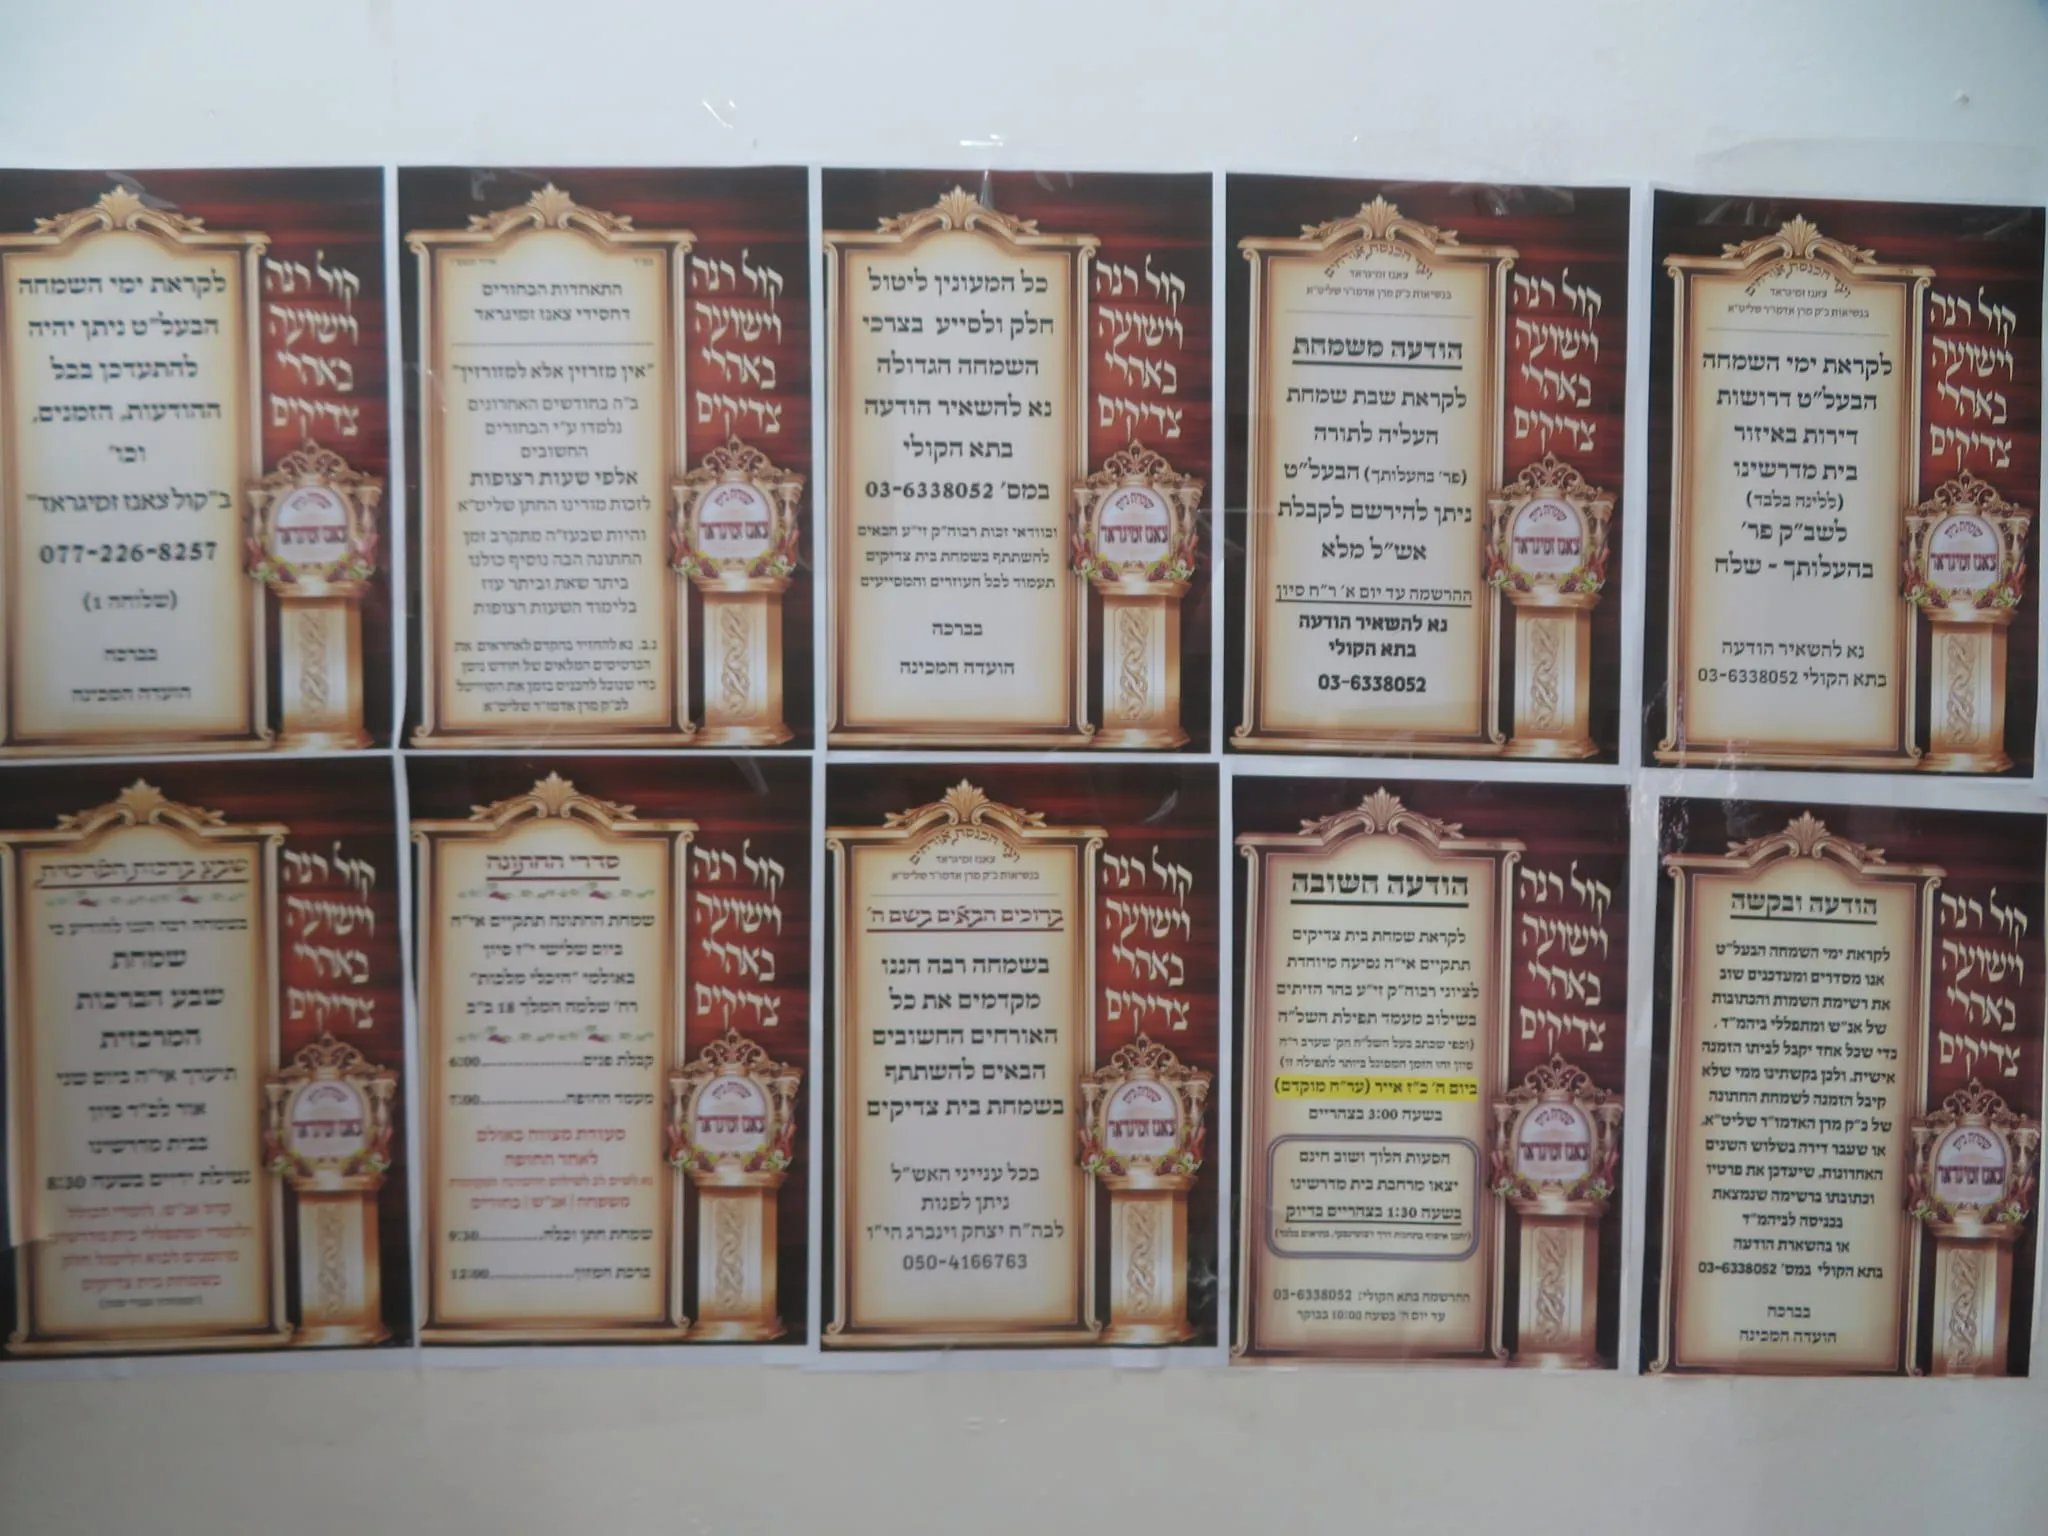 לקראת ימי השמחה
הבעל"ט ניתן יהיה
להתעדכן בכל
ההודעות, הזמנים,
וכו'
ב"קול צאנז זמיגראד"
077-226-8257
(שלוחה 1)
בברכה
הועדה המכינה
קול רנה
וישועה
באהלי
צדיקים
שמחת בית
צאנז זמיגראד
התאחדות הבחורים
דחסידי צאנז זמיגראד
"אין מזרזין אלא למזורזין"
ב"ה בחודשים האחרונים
נלמדו ע"י הבחורים
החשובים
אלפי שעות רצופות
לזכות מורינו החתן שליט"א
והיות שבעז"ה מתקרב זמן
החתונה הבה נוסיף כולנו
ביתר שאת וביתר עוז
בלימוד השעות רצופות
נ.ב. נא להחזיר בהקדם לאחראים את
הכרטיסים המלאים של חודש ניסן
כדי שנוכל להכניסם בזמן את הקוויטל
לכ"ק מרן אדמו"ר שליט"א
קול רנה
וישועה
באהלי
צדיקים
שמחת בית
צאנז זמיגראד
כל המעונין ליטול
חלק ולסייע בצרכי
השמחה הגדולה
נא להשאיר הודעה
בתא הקולי
במס' 03-6338052
ובוודאי זכות רבוה"ק זי"ע הבאים
להשתתף בשמחת בית צדיקים
תעמוד לכל העוזרים והמסייעים
בברכה
הועדה המכינה
קול רנה
וישועה
באהלי
צדיקים
שמחת בית
צאנז זמיגראד
ועד הכנסת אורחים
צאנז זמיגראד
בנשיאות כ"ק מרן אדמו"ר שליט"א
הודעה משמחת
לקראת שבת שמחת
העליה לתורה
(פר' בהעלותך) הבעל"ט
ניתן להירשם לקבלת
אש"ל מלא
ההרשמה עד יום א' ר"ח סיון
נא להשאיר הודעה
בתא הקולי
03-6338052
קול רנה
וישועה
באהלי
צדיקים
שמחת בית
צאנז זמיגראד
ועד הכנסת אורחים
צאנז זמיגראד
בנשיאות כ"ק מרן אדמו"ר שליט"א
לקראת ימי השמחה
הבעל"ט דרושות
דירות באיזור
בית מדרשינו
(ללינה בלבד)
לשב"ק פר'
בהעלותך - שלח
נא להשאיר הודעה
בתא הקולי 03-6338052
קול רנה
וישועה
באהלי
צדיקים
שמחת בית
צאנז זמיגראד
שבע ברכות המרכזית
בשמחה רבה הננו להודיע כי
שמחת
שבע הברכות
המרכזית
תיערך אי"ה ביום שני
אור לכ"ד סיון
בבית מדרשינו
נטילת ידיים בשעה 8:30
בשמחת בית צדיקים
קול רנה
וישועה
באהלי
צדיקים
שמחת בית
צאנז זמיגראד
סדרי החתונה
שמחת החתונה תתקיים אי"ה
ביום שלישי י"ז סיון
באולמי "היכלי מלכות"
רח' שלמה המלך 18 ב"ב
קבלת פנים...............6:00
מעמד החופה...............7:00
סעודת מצווה באולם
לאחר החופה
משפחה | אנ"ש | בחורים
שמחת חתן וכלה...............9:30
ברכת המזון...............12:00
קול רנה
וישועה
באהלי
צדיקים
שמחת בית
צאנז זמיגראד
ועד הכנסת אורחים
צאנז זמיגראד
בנשיאות כ"ק מרן אדמו"ר שליט"א
ברוכים הבאים בשם ה'
בשמחה רבה הננו
מקדמים את כל
האורחים החשובים
הבאים להשתתף
בשמחת בית צדיקים
בכל ענייני האש"ל
ניתן לפנות
לבה"ח יצחק וינברג הי"ו
050-4166763
קול רנה
וישועה
באהלי
צדיקים
שמחת בית
צאנז זמיגראד
הודעה חשובה
לקראת שמחת בית צדיקים
תתקיים אי"ה נסיעה מיוחדת
לציוני רבוה"ק זי"ע בהר הזיתים
בשילוב מעמד תפילת השל"ה
(וכפי שכתב בעל השל"ה הק' שערב ר"ח
סיון זהו הזמן המסוגל ביותר לתפילה זו)
ביום ה' כ"ז אייר (ער"ח מוקדם)
בשעה 3:00 בצהריים
הסעות הלוך ושוב חינם
יצאו מרחבת בית מדרשינו
בשעה 1:30 בצהריים בדיוק
ההרשמה בתא הקולי: 03-6338052
עד יום ה' בשעה 10:00 בבוקר
קול רנה
וישועה
באהלי
צדיקים
שמחת בית
צאנז זמיגראד
הודעה ובקשה
לקראת ימי השמחה הבעל"ט
אנו מסדרים ומעדכנים שוב
את רשימת השמות והכתובות
של אנ"ש ומתפללי ביהמ"ד,
כדי שכל אחד יקבל לביתו הזמנה
אישית, ולכן בקשתינו ממי שלא
קיבל הזמנה לשמחת החתונה
של כ"ק מרן האדמו"ר שליט"א,
או שעבר דירה בשלוש השנים
האחרונות, שיעדכן את פרטיו
וכתובתו ברשימה שנמצאת
בכניסה לביהמ"ד
או בהשארת הודעה
בתא הקולי במס' 03-6338052
בברכה
הועדה המכינה
קול רנה
וישועה
באהלי
צדיקים
שמחת בית
צאנז זמיגראד